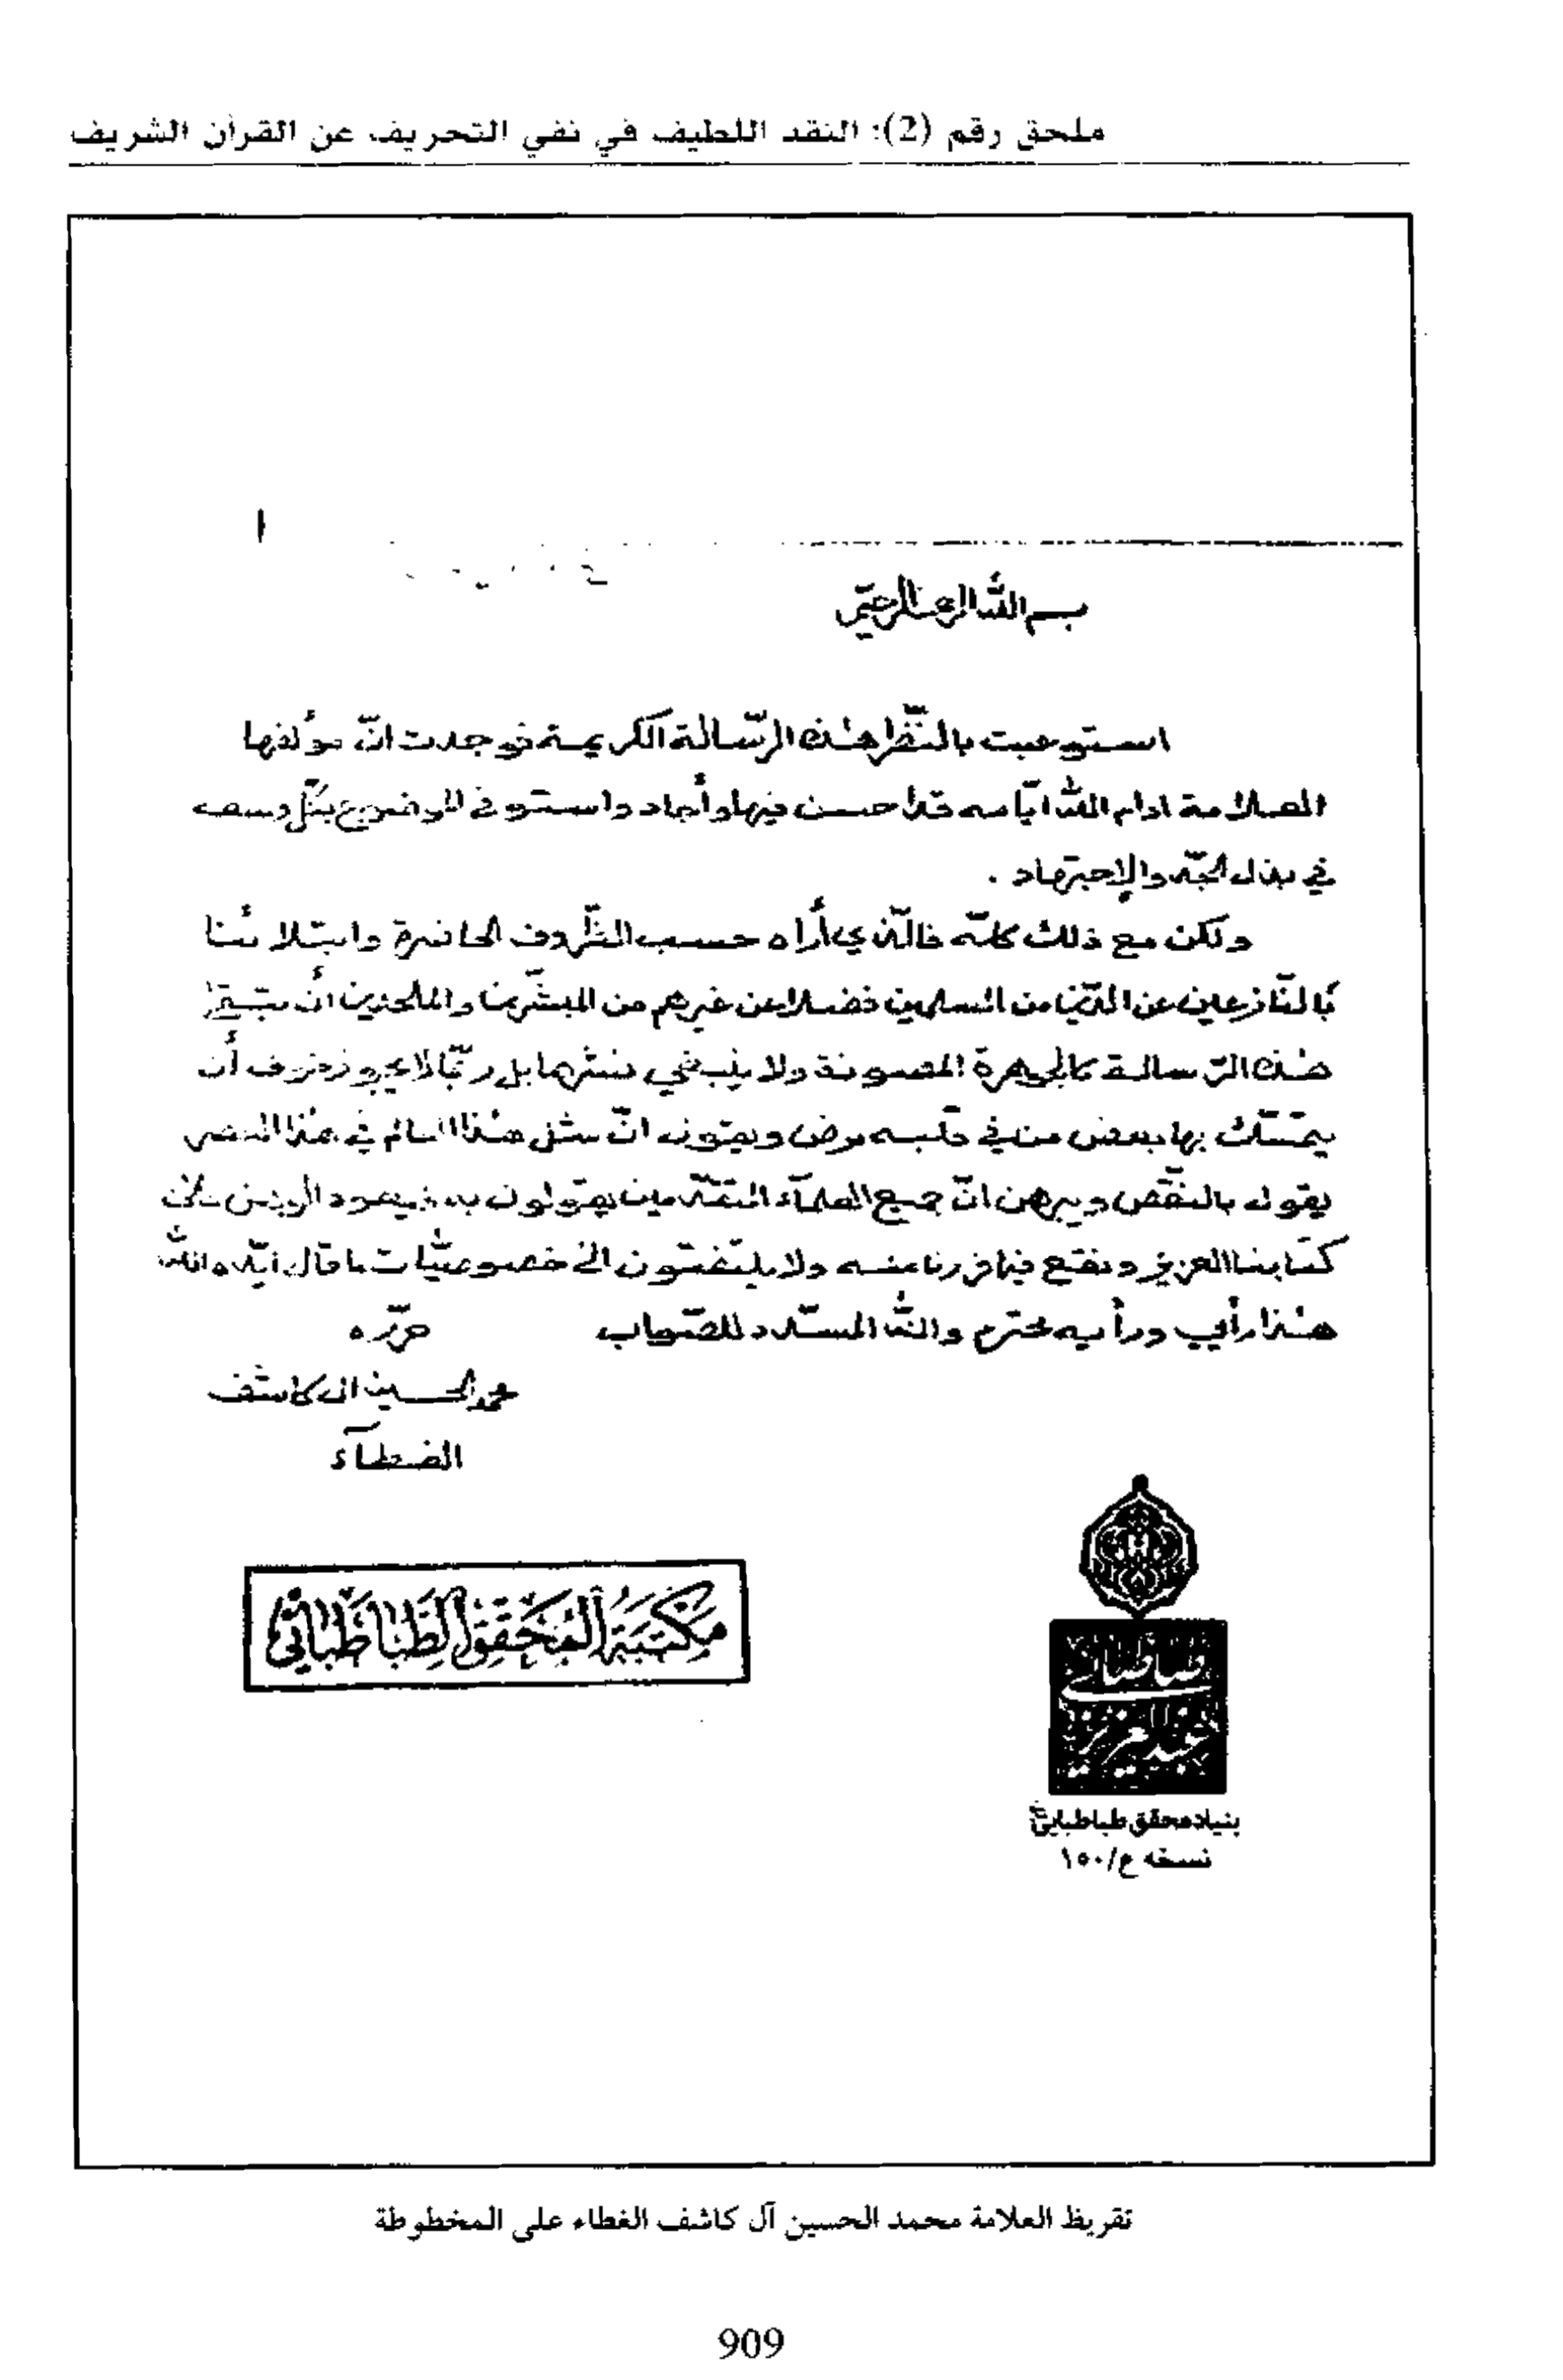 ملحق رقم (2): النقد اللطيف في نفي التحريف عن القرآن الشريف
١
بسم الله الرحمن الرحيم
استوعبت بالنّظر هذه الرّسالة الكريمة فوجدت انّ مؤلفها
العلامة ادام الله ايّامه قد أحسن فيها وأجاد واستوفى الموضوع بكلّ وسعه
في بذل الجهد والإجتهاد .
ولكن مع ذلك كلّه فالّذي أراه حسب الظّروف الحاضرة وابتلائنا
بالنّازعين عن الدّين من المسلمين فضلا عن غيرهم من المبشّرين والملحدين أن تبقى
هذه الرّسالة كالجوهرة المصونة ولا ينبغي نشرها بل ربّما لا يجوز خوف أن
يتمسّك بها بعض من في قلبه مرض ويقول انّ مثل هذا العالم في هذا العصر
يقول بالنّقص ويبرهن انّ جميع العلمآء المتقدّمين يقولون به فيعود الوهن على
كتابنا العزيز ونقع فيما فررنا منه ولا يلتفتون الى خصوصيّات ما قال ايّده الله
هذا رأيي ورأيه محترم والله المسدّد للصّواب حرّره
محمد الحسين ال كاشف
الغطآء
مكتبة المحقق الطباطبائي
طباطبائي
عبدالعزيز
بنياد محقق طباطبايي
نسخه ع/١٥٠
تقريظ العلامة محمد الحسين آل كاشف الغطاء على المخطوطة
909